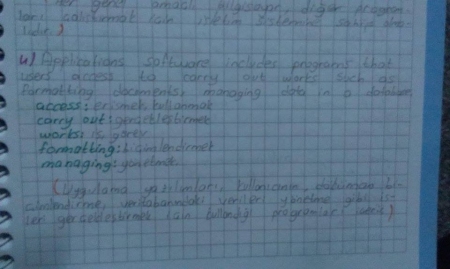 her genel amaçlı bilgisayar, diğer program-
ları çalıştırmak için işletim sistemine sahip olma-
lıdır.)
4) Applications software includes programs that
users access to carry out works such as
formatting documents, managing data in a database.
access: erişmek, kullanmak
carry out: gerçekleştirmek
works: iş, görev
formatting: biçimlendirmek
managing: yönetmek
(Uygulama yazılımları, kullanıcının, doküman bi-
çimlendirme, veritabanındaki verileri yönetme gibi iş-
leri gerçekleştirmek için kullandığı programları içerir.)